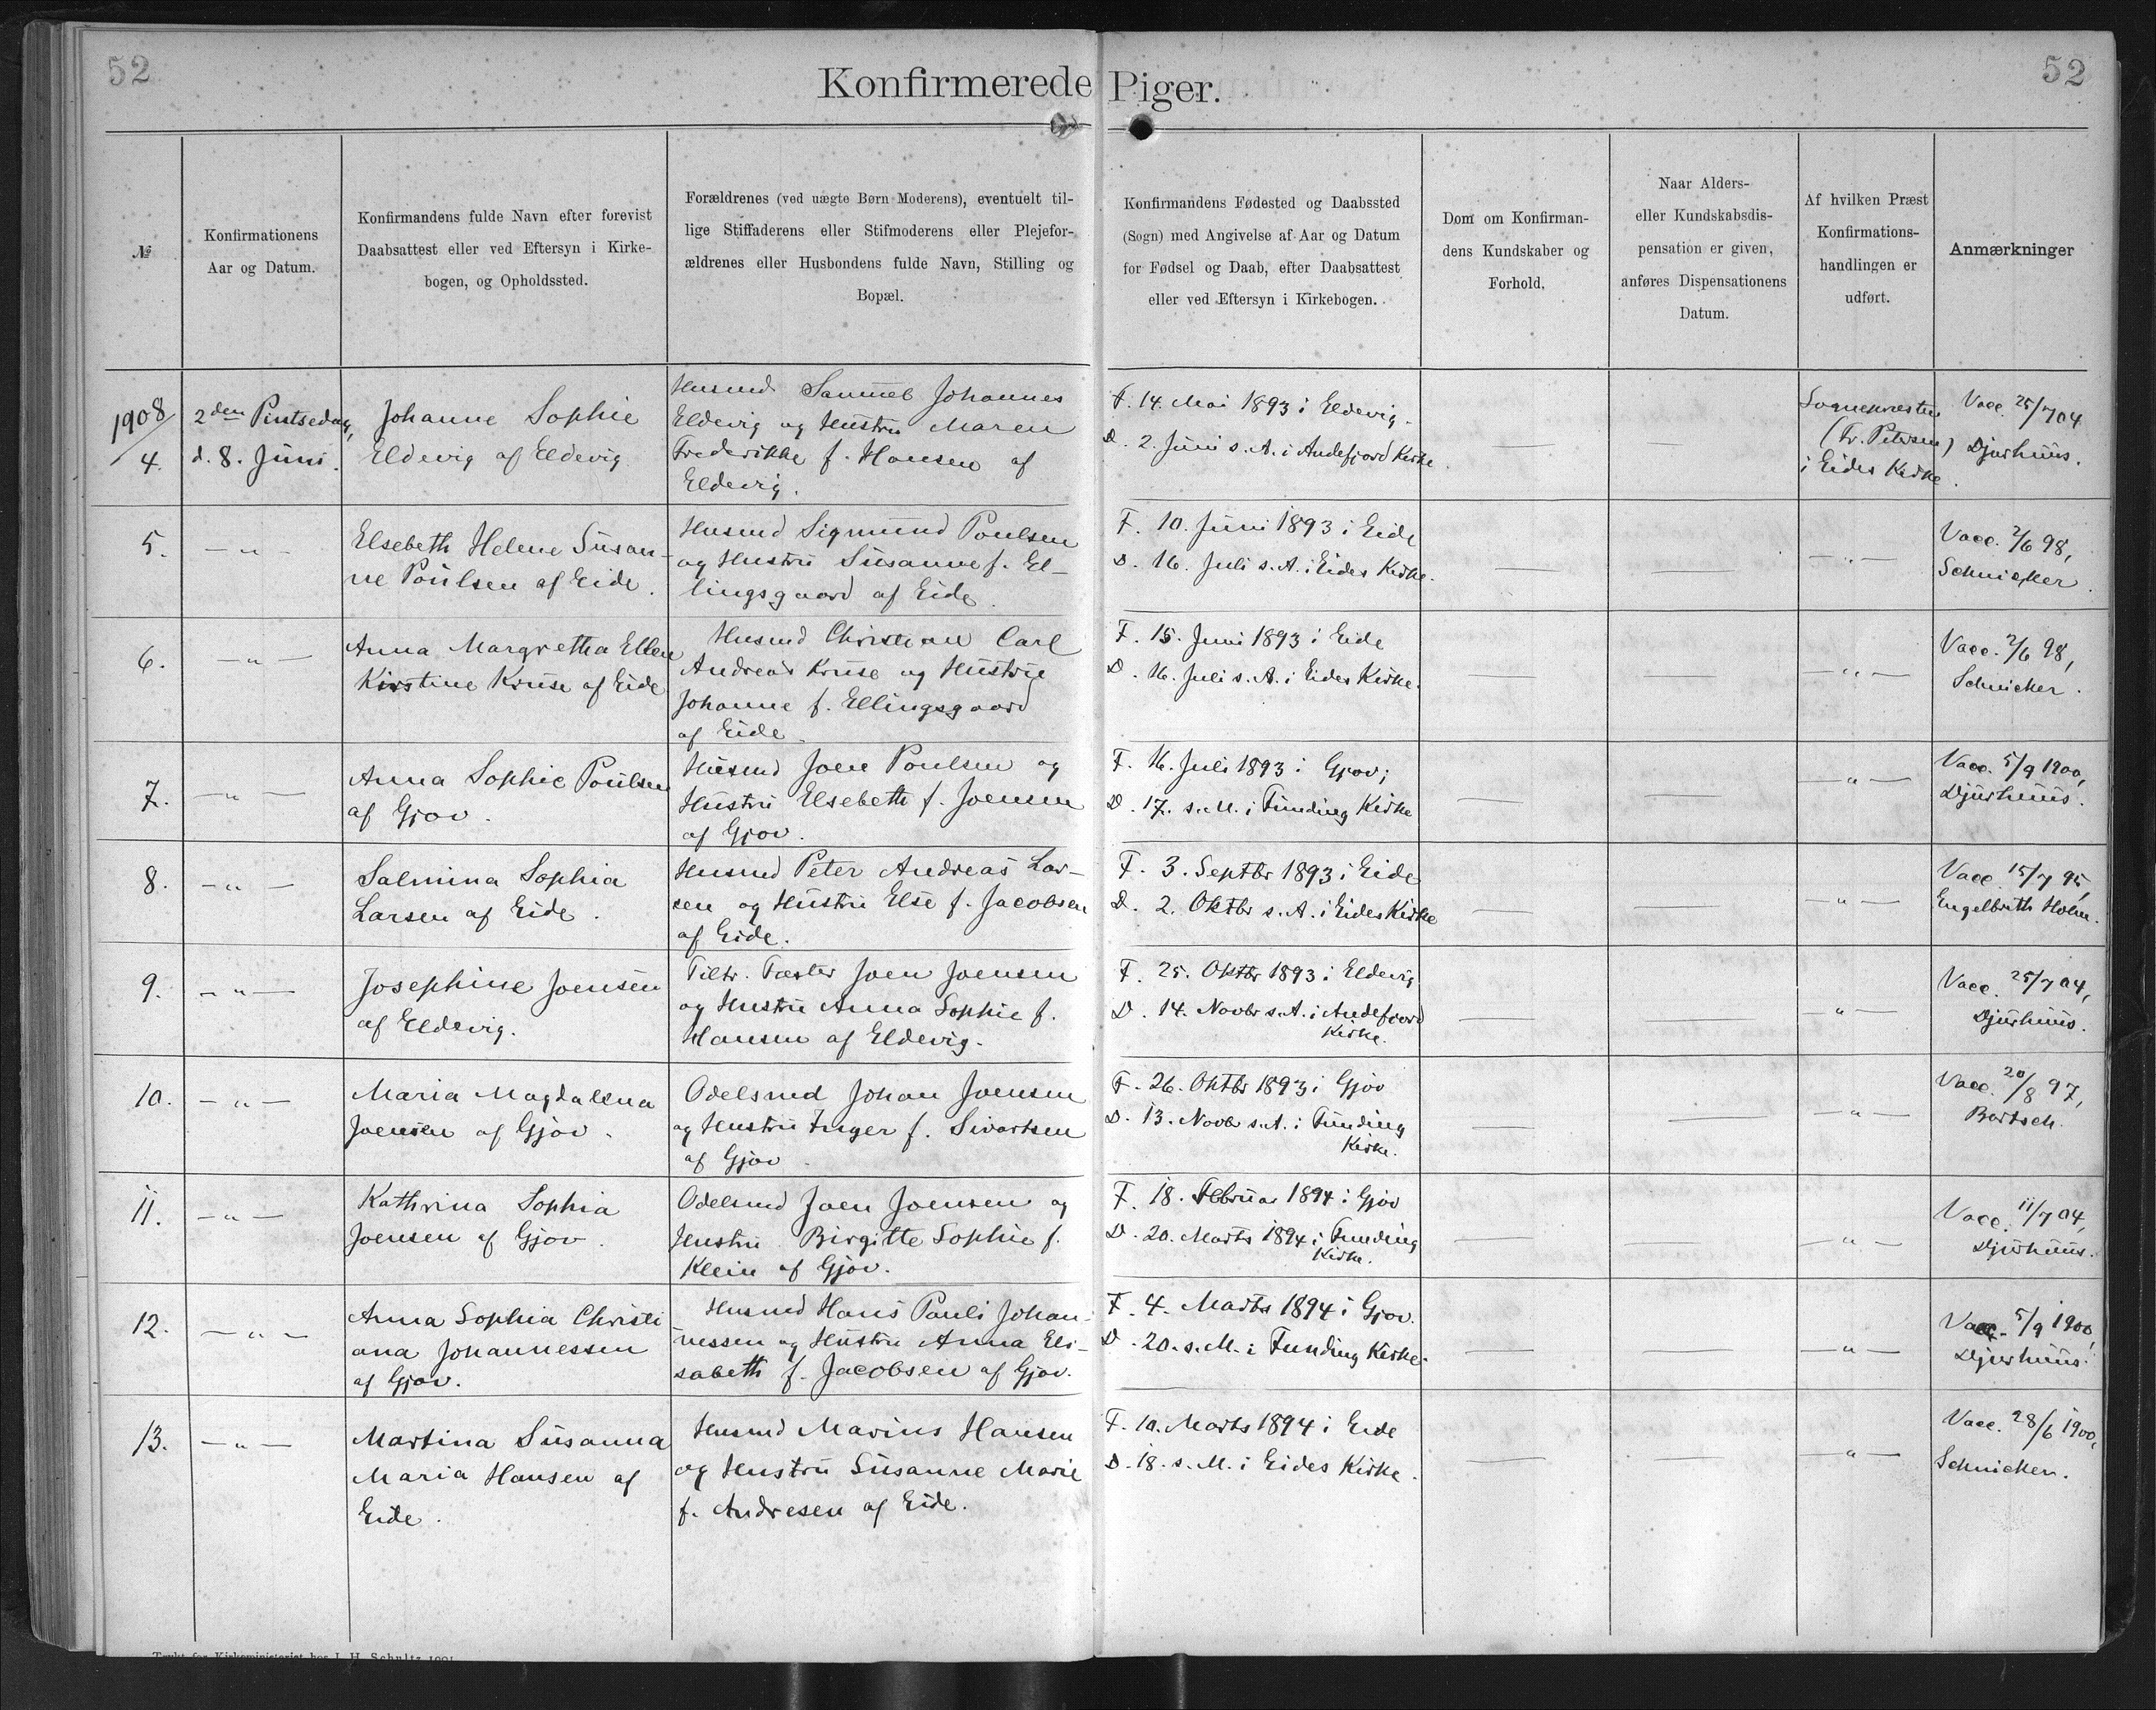 52
52
Konfirmerede Piger.
№
Konfirmationens
Aar og Datum.
Konfirmandens fulde Navn efter forevist
Daabsattest eller ved Eftersyn i Kirke-
bogen, og Opholdssted.
Forældrenes (ved uægte Børn Moderens), eventuelt til-
lige Stiffaderens eller Stifmoderens eller Plejefor-
ældrenes eller Husbondens fulde Navn, Stilling og
Bopæl.
Konfirmandens Fødested og Daabssted
(Sogn) med Angivelse af Aar og Datum
for Fødsel og Daab, efter Daabsattest
eller ved Eftersyn i Kirkebogen.
Dom om Konfirman-
dens Kundskaber og
Forhold.
Naar Alders-
eller Kundskabsdis-
pensation er given,
anføres Dispensationens
Datum.
Af hvilken Præst
Konfirmations-
handlingen er
udført.
Anmærkninger
1908/
4.
2den Pintsedag,
d. 8. Juni.
Johanne Sophie
Eldevig af Eldevig
Husmd Sammel Johannes
Eldevig og Hustru Maren
Frederikke f. Hansen af
Eldevig.
F. 14. Mai 1893 i Eldevig.
D. 2. Juni s. A. i Andefjord Kirke.
—
—
Sognepræsten
(Fr. Petersen)
i Eides Kirke.
Vacc. 25/7 04
Djurhuus.
5.
— " —
Elsebeth Helene Susan-
ne Poulsen af Eide.
Husmd Sigmund Poulsen
og Hustru Susanne f. El-
lingsgaard af Eide.
F. 10. Juni 1893 i Eide
D. 16. Juli s. A. i Eides Kirke.
—
—
— " —
Vacc. 2/6 98,
Schnicker.
6.
— " —
Anna Margretha Ellen
Kirstine Kruse af Eide
Husmd Christian Carl
Andreas Kruse og Hustru
Johanne f. Ellingsgaard
af Eide.
F. 15. Juni 1893 i Eide
D. 16. Juli s. A. i Eides Kirke.
—
—
— " —
Vacc. 2/6 98,
Schnicker.
7.
— " —
Anna Sophie Poulsen
af Gjov.
Husmd Joen Poulsen og
Hustru Elsebeth f. Joensen
af Gjov.
F. 16. Juli 1893 i Gjov;
D. 17. s. M. i Funding Kirke
—
—
— " —
Vacc. 5/9 1900,
Djurhuus.
8.
— " —
Salmina Sophia
Larsen af Eide.
Husmd Peter Andreas Lar-
sen og Hustru Else f. Jacobsen
af Eide.
F. 3. Septbr 1893 i Eide
D. 2. Oktbr s. A. i Eides Kirke
—
—
— " —
Vacc. 15/7 95,
Engelbrith Holm.
9.
— " —
Josephine Joensen
af Eldevig.
Tiltr. Fæster Joen Joensen
og Hustru Anna Sophie f.
Hansen af Eldevig.
F. 25. Oktbr 1893 i Eldevig
D. 14. Novbr s. A. i Andefjord
Kirke.
—
—
— " —
Vacc. 25/7 04,
Djurhuus.
10.
— " —
Maria Magdalena
Joensen af Gjov.
Odelsmd Johan Joensen
og Hustru Inger f. Sivartsen
af Gjov.
F. 26. Oktbr 1893 i Gjov
D. 13. Novbr s. A. i Funding
Kirke.
—
—
— " —
Vacc. 20/8 97,
Bartsch.
11.
— " —
Kathrina Sophia
Joensen af Gjov.
Odelsmd Joen Joensen og
Hustru Birgitte Sophie f.
Klein af Gjov.
F. 18. Februar 1894 i Gjov
D. 20. Marts 1894 i Funding
Kirke.
—
—
— " —
Vacc. 11/7 04,
Djurhuus.
12.
— " —
Anna Sophia Christi
ana Johannessen
af Gjov.
Husmd Hans Pauli Johan-
nessen og Hustru Anna Eli-
sabeth f. Jacobsen af Gjov.
F. 4. Marts 1894 i Gjov.
D. 20. s. M. i Funding Kirke.
—
—
— " —
Vacc. 5/9 1900,
Djurhuus.
13.
— " —
Martina Susanna
Maria Hansen af
Eide.
Husmd Marius Hansen
og Hustru Susanne Marie
f. Andresen af Eide.
F. 10. Marts 1894 i Eide
D. 18. s. M. i Eides Kirke.
—
—
— " —
Vacc. 28/6 1900,
Schnicker.